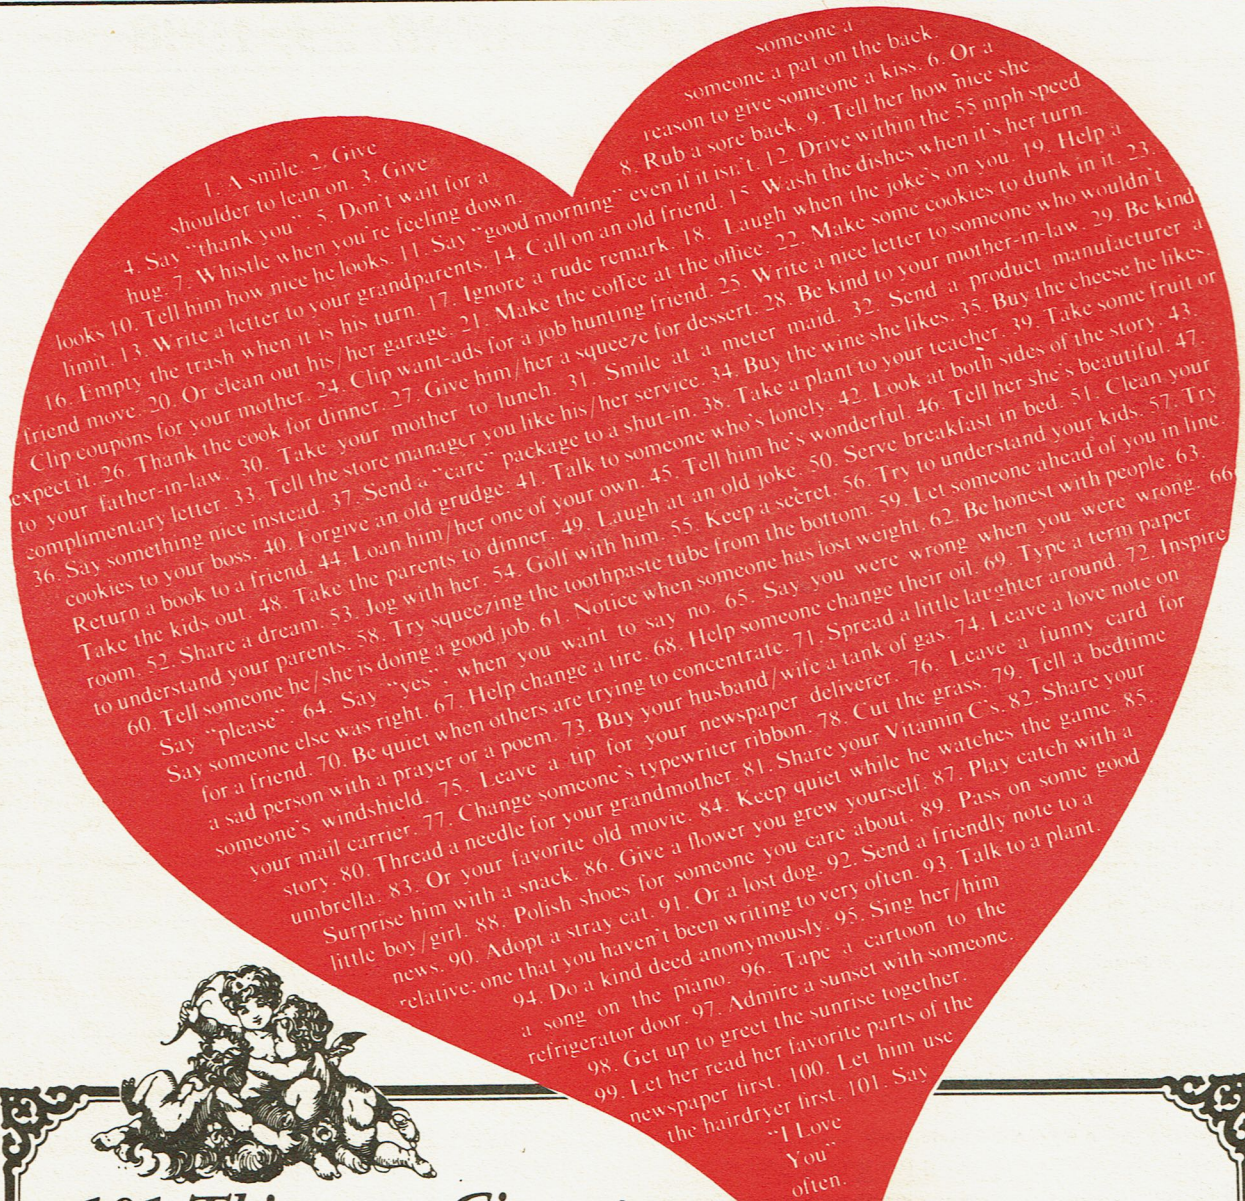 1. A smile. 2. Give someone a
shoulder to lean on. 3. Give someone a pat on the back.
4. Say "thank you". 5. Don't wait for a reason to give someone a kiss. 6. Or a
hug. 7. Whistle when you're feeling down. 8. Rub a sore back. 9. Tell her how nice she
looks 10. Tell him how nice he looks. 11. Say "good morning" even if it isn't. 12. Drive within the 55 mph speed
limit. 13. Write a letter to your grandparents. 14. Call on an old friend. 15. Wash the dishes when it's her turn.
16. Empty the trash when it is his turn. 17. Ignore a rude remark. 18. Laugh when the joke's on you. 19. Help a
friend move. 20. Or clean out his/her garage. 21. Make the coffee at the office. 22. Make some cookies to dunk in it. 23.
Clip coupons for your mother. 24. Clip want-ads for a job hunting friend. 25. Write a nice letter to someone who wouldn't
expect it. 26. Thank the cook for dinner. 27. Give him/her a squeeze for dessert. 28. Be kind to your mother-in-law. 29. Be kind
to your father-in-law. 30. Take your mother to lunch. 31. Smile at a meter maid. 32. Send a product manufacturer a
complimentary letter. 33. Tell the store manager you like his/her service. 34. Buy the wine she likes. 35. Buy the cheese he likes.
36. Say something nice instead. 37. Send a "care" package to a shut-in. 38. Take a plant to your teacher. 39. Take some fruit or
cookies to your boss. 40. Forgive an old grudge. 41. Talk to someone who's lonely. 42. Look at both sides of the story. 43.
Return a book to a friend. 44. Loan him/her one of your own. 45. Tell him he's wonderful. 46. Tell her she's beautiful. 47.
Take the kids out. 48. Take the parents to dinner. 49. Laugh at an old joke. 50. Serve breakfast in bed. 51. Clean your
room. 52. Share a dream. 53. Jog with her. 54. Golf with him. 55. Keep a secret. 56. Try to understand your kids. 57. Try
to understand your parents. 58. Try squeezing the toothpaste tube from the bottom. 59. Let someone ahead of you in line.
60. Tell someone he/she is doing a good job. 61. Notice when someone has lost weight. 62. Be honest with people. 63.
Say "please". 64. Say "yes", when you want to say no. 65. Say you were wrong when you were wrong. 66.
Say someone else was right. 67. Help change a tire. 68. Help someone change their oil. 69. Type a term paper
for a friend. 70. Be quiet when others are trying to concentrate. 71. Spread a little laughter around. 72. Inspire
a sad person with a prayer or a poem. 73. Buy your husband/wife a tank of gas. 74. Leave a love note on
someone's windshield. 75. Leave a tip for your newspaper deliverer. 76. Leave a funny card for
your mail carrier. 77. Change someone's typewriter ribbon. 78. Cut the grass. 79. Tell a bedtime
story. 80. Thread a needle for your grandmother. 81. Share your Vitamin C's. 82. Share your
umbrella. 83. Or your favorite old movie. 84. Keep quiet while he watches the game. 85.
Surprise him with a snack. 86. Give a flower you grew yourself. 87. Play catch with a
little boy/girl. 88. Polish shoes for someone you care about. 89. Pass on some good
news. 90. Adopt a stray cat. 91. Or a lost dog. 92. Send a friendly note to a
relative: one that you haven't been writing to very often. 93. Talk to a plant.
94. Do a kind deed anonymously. 95. Sing her/him
a song on the piano. 96. Tape a cartoon to the
refrigerator door. 97. Admire a sunset with someone.
98. Get up to greet the sunrise together.
99. Let her read her favorite parts of the
newspaper first. 100. Let him use
the hairdryer first. 101. Say
"I Love
You"
often.